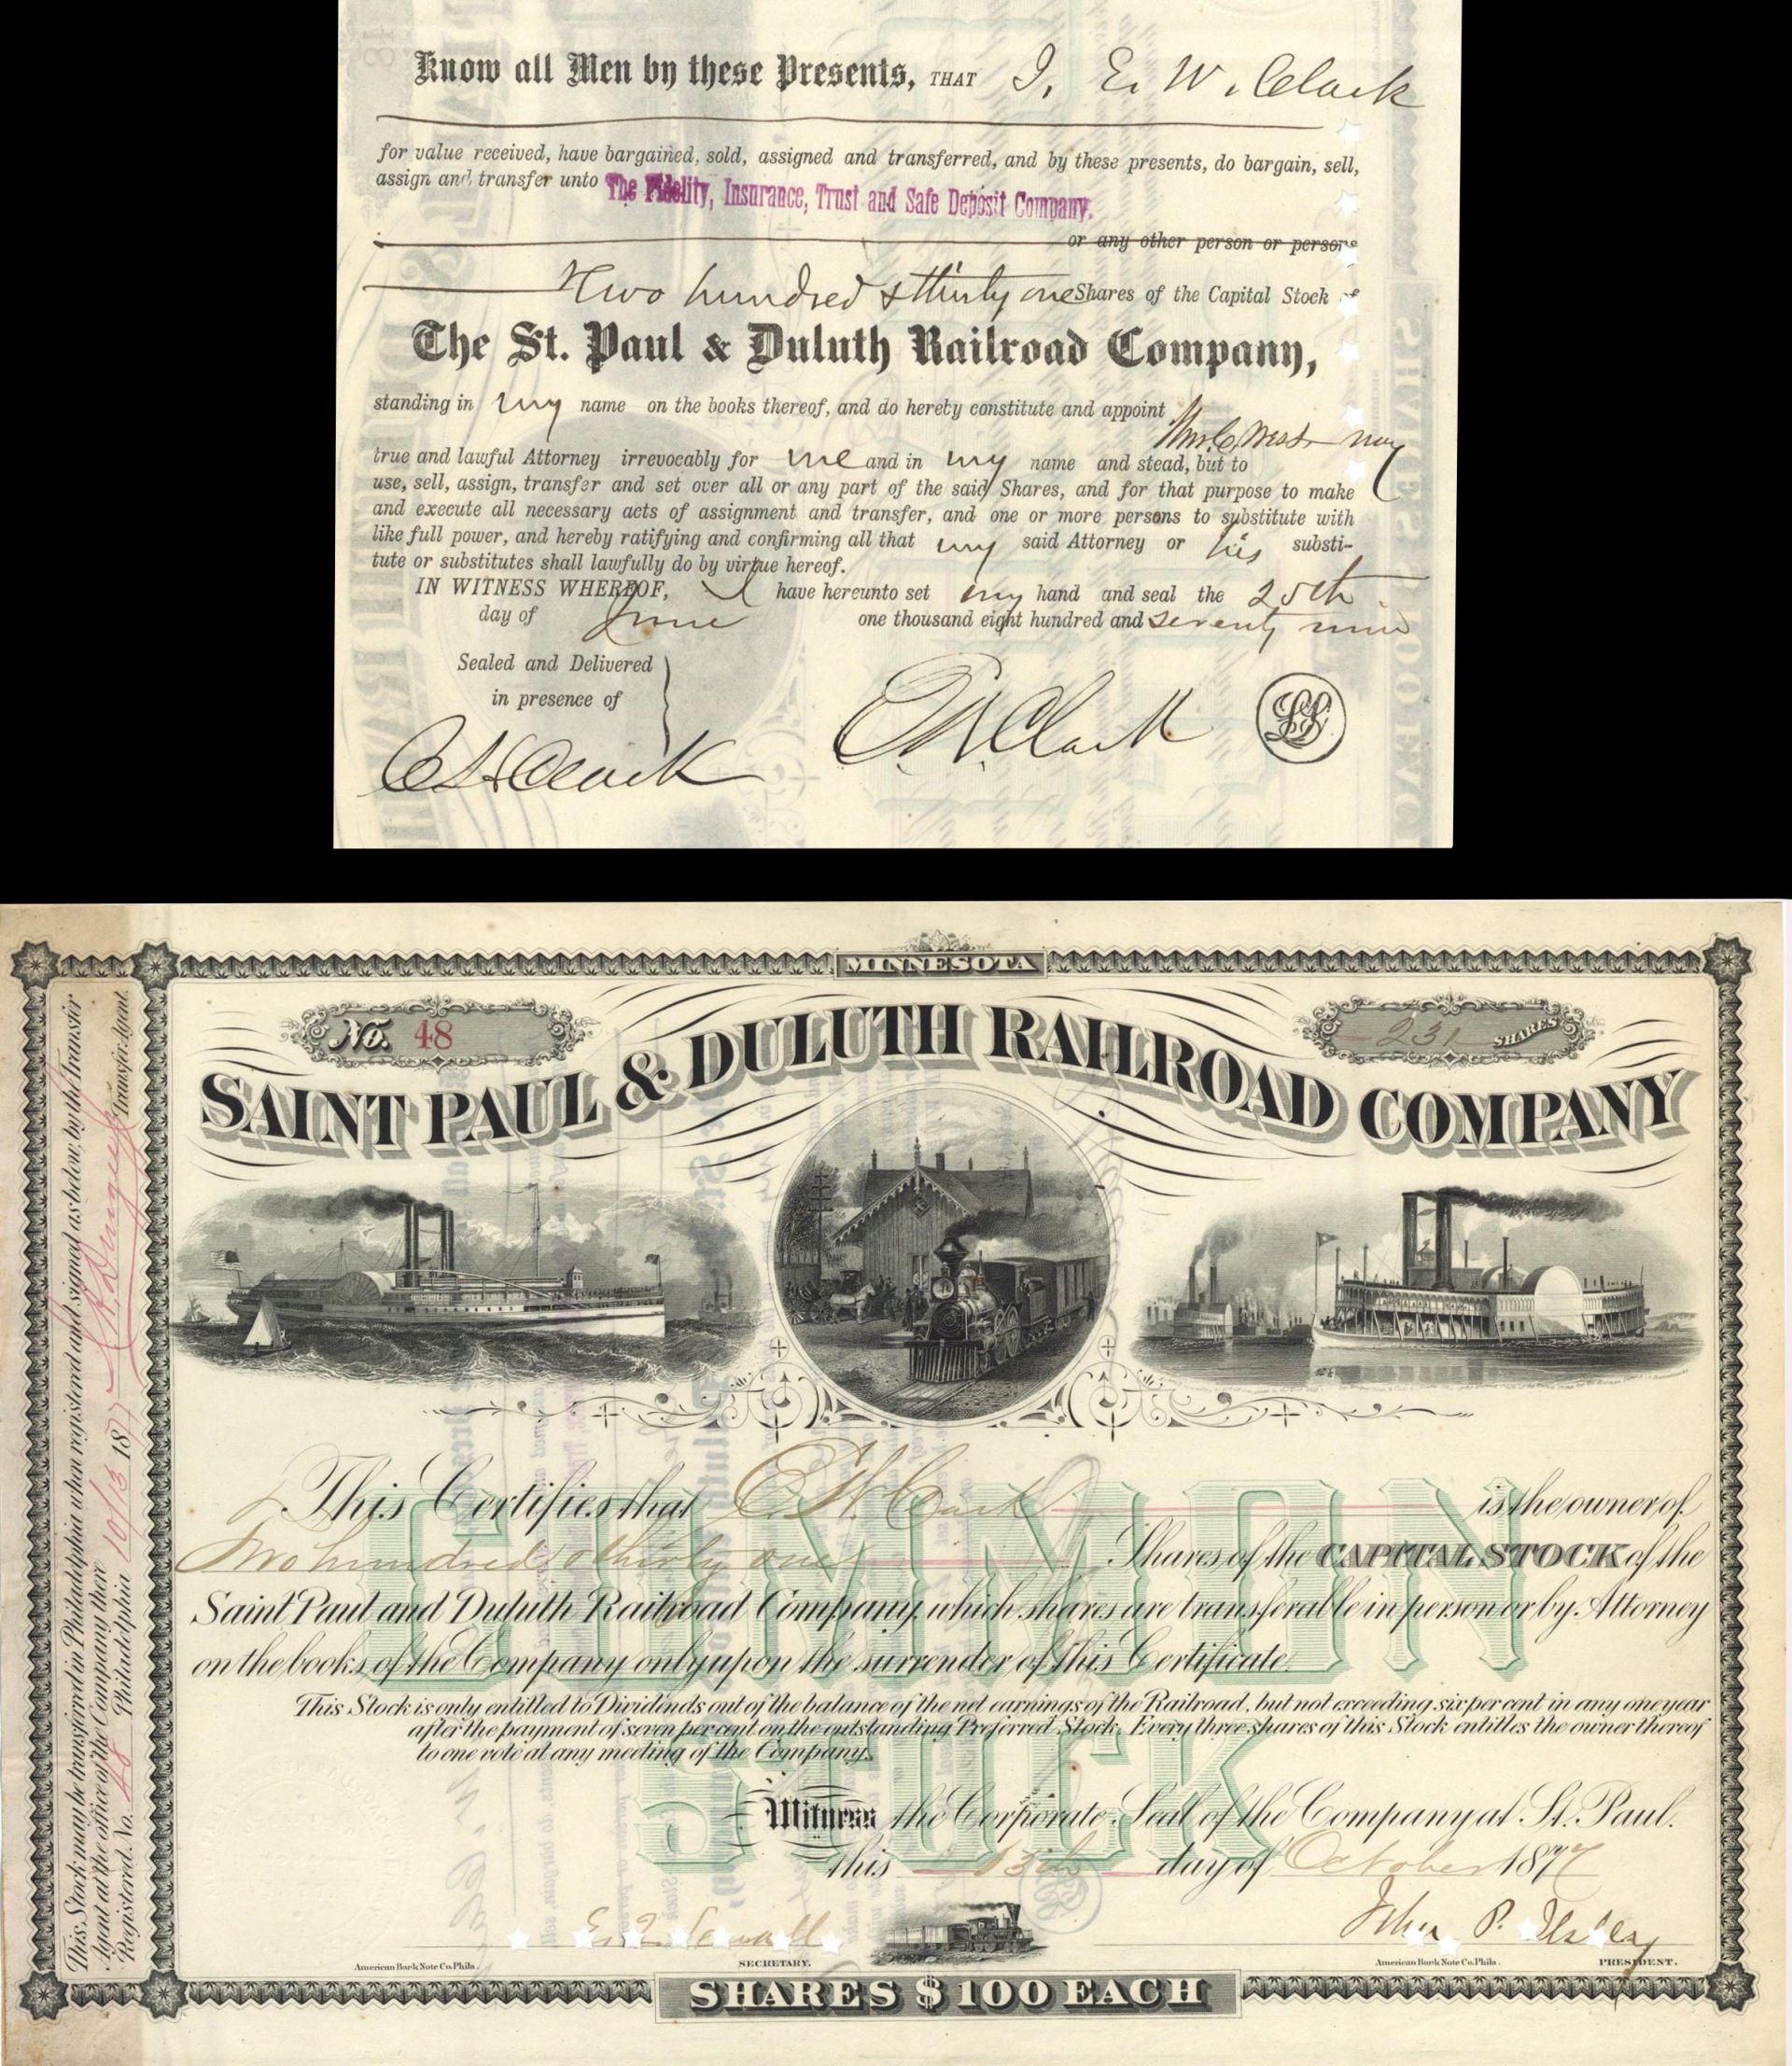 Know all Men by these Presents, THAT I, E. W. Clark
for value received, have bargained, sold, assigned and transferred, and by these presents, do bargain, sell,
assign and transfer unto The Fidelity, Insurance, Trust and Safe Deposit Company.
or any other person or persons
Two hundred & thirty one Shares of the Capital Stock of
The St. Paul & Duluth Railroad Company,
standing in my name on the books thereof, and do hereby constitute and appoint
true and lawful Attorney irrevocably for me and in my name and stead, but to
use, sell, assign, transfer and set over all or any part of the said Shares, and for that purpose to make
and execute all necessary acts of assignment and transfer, and one or more persons to substitute with
like full power, and hereby ratifying and confirming all that my said Attorney or his substi-
tute or substitutes shall lawfully do by virtue hereof.
IN WITNESS WHEREOF, I have hereunto set my hand and seal the 25th
day of June one thousand eight hundred and seventy nine
Sealed and Delivered
in presence of
E. W. Clark LS
Clark
MINNESOTA
No. 48
231 SHARES
SAINT PAUL & DULUTH RAILROAD COMPANY
This Certifies that E. W. Clark is the owner of
Two hundred & thirty one Shares of the CAPITAL STOCK of the
Saint Paul and Duluth Railroad Company, which shares are transferable in person or by Attorney
on the books of the Company only upon the surrender of this Certificate.
This Stock is only entitled to Dividends out of the balance of the net earnings of the Railroad, but not exceeding six per cent in any one year
after the payment of seven per cent on the outstanding Preferred Stock. Every three shares of this Stock entitles the owner thereof
to one vote at any meeting of the Company.
COMMON
STOCK
Witness the Corporate Seal of the Company at St. Paul.
this 13th day of October 1877
SECRETARY.
John P.
PRESIDENT.
American Bank Note Co. Phila.
American Bank Note Co. Phila.
SHARES $100 EACH
This Stock may be transferred in Philadelphia when registered and signed as below, by the Transfer
Agent at the office of the Company there
Registered. No. 48 Philadelphia 10/13 1877 Transfer Agent.